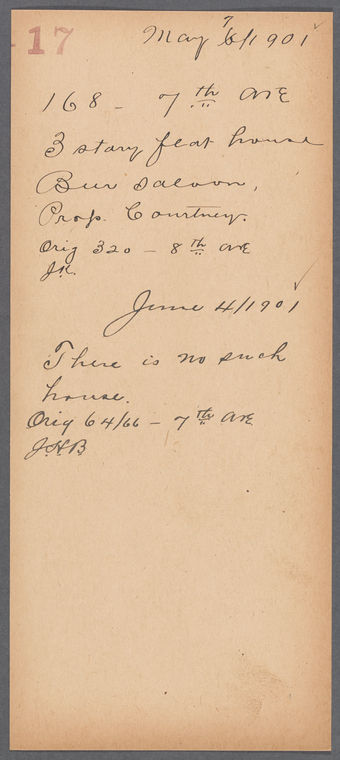 17
May 7/1901
168 - 7th Ave
3 story flat house
Beer Saloon,
Prop. Courtney.
Orig 320 - 8th Ave
J.K.
June 4/1901
There is no such
house.
Orig 64/66 - 7th Ave
J.H.B